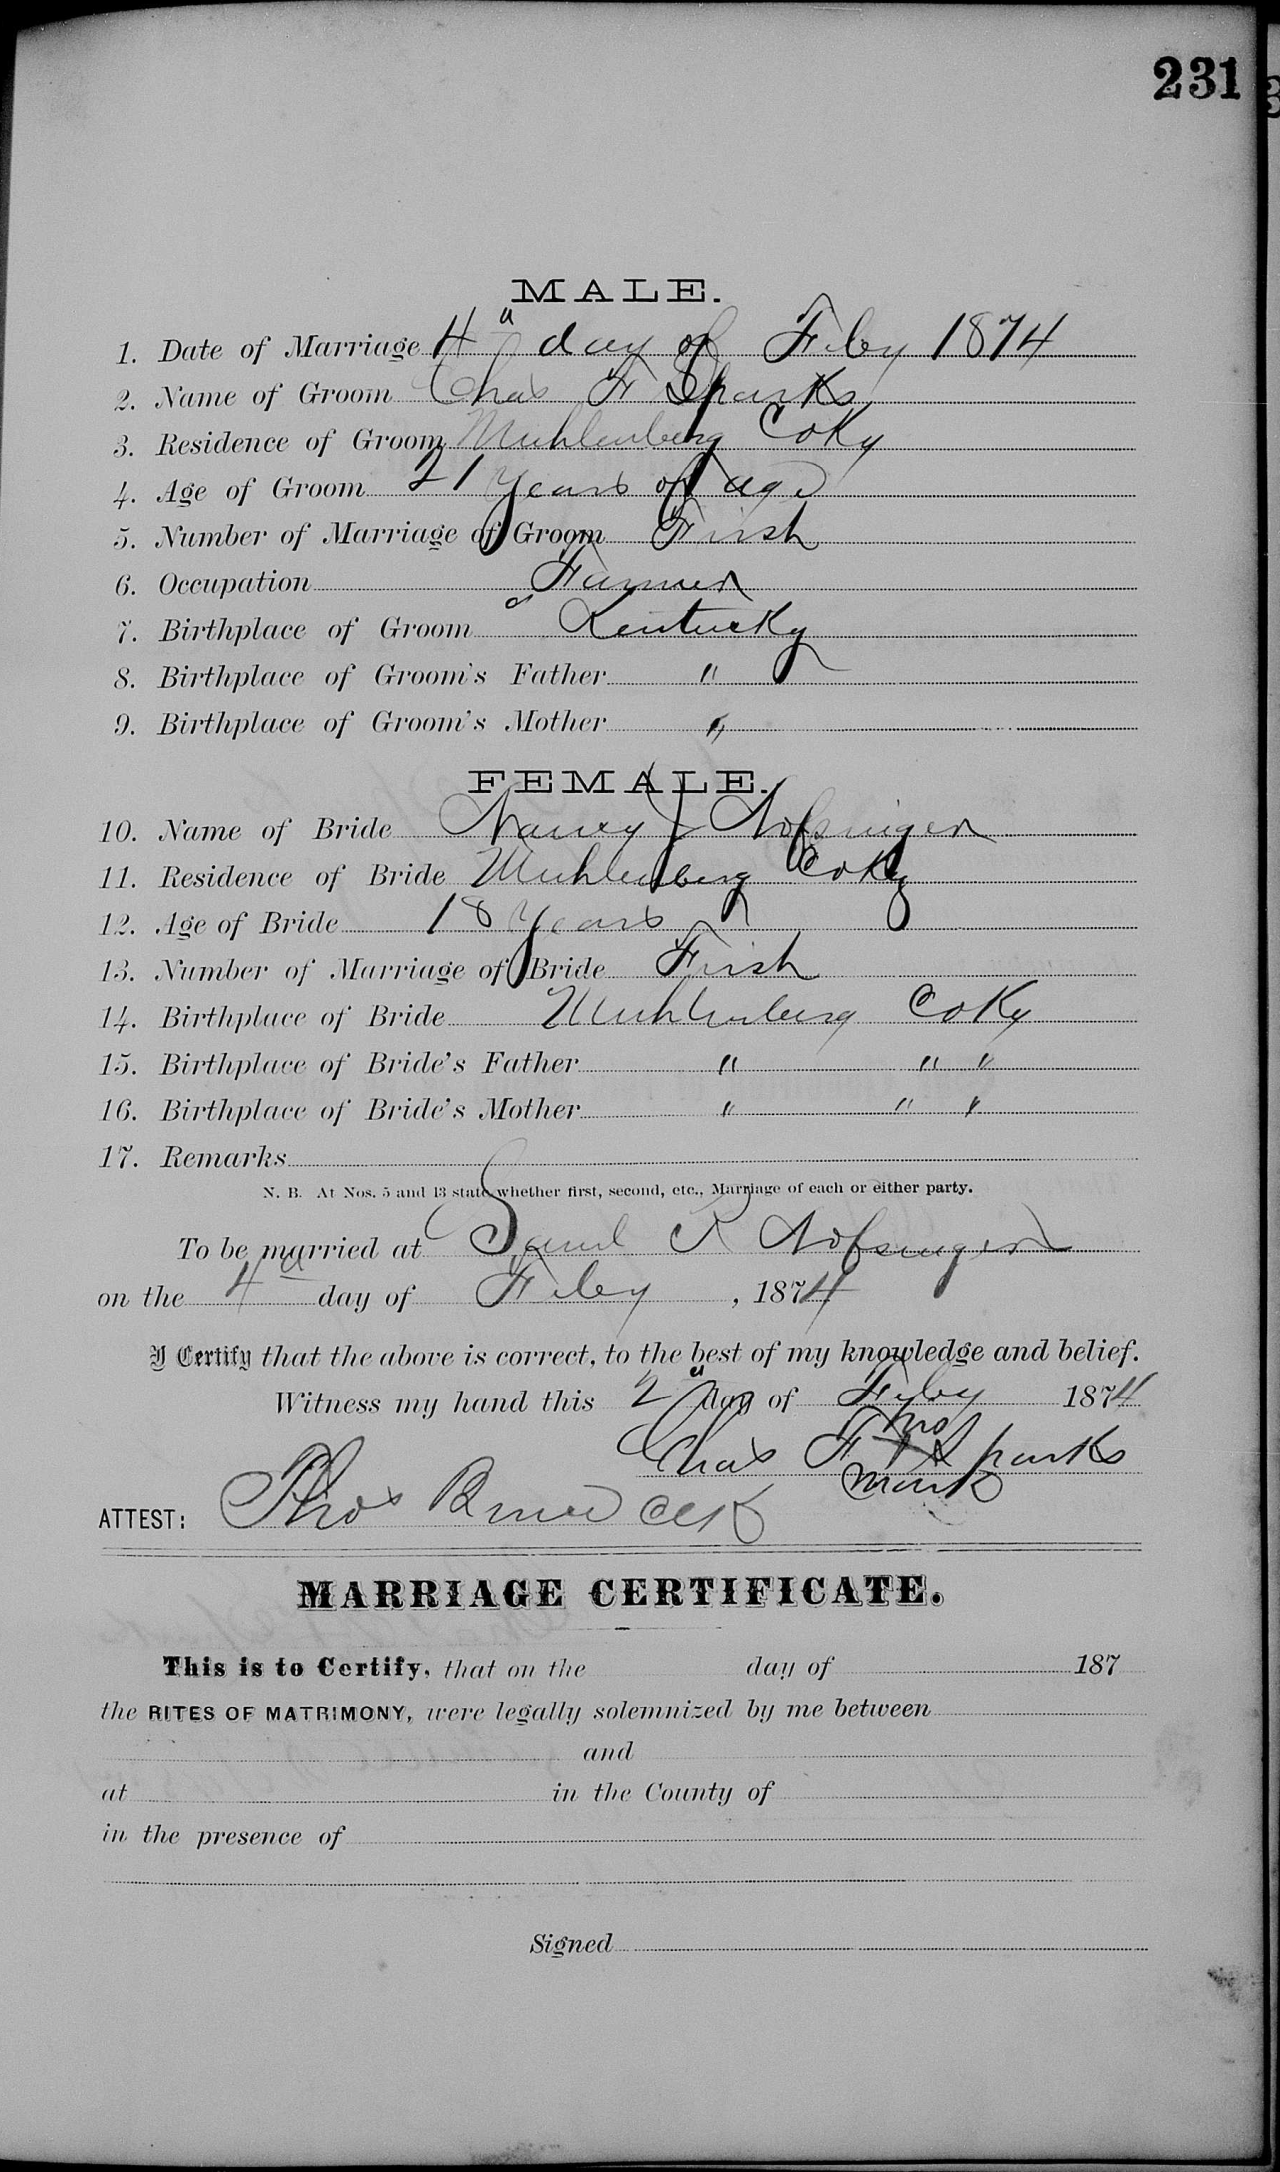 231
MALE.
1. Date of Marriage 4" day of Feby 1874
2. Name of Groom Chas F Sparks
3. Residence of Groom Muhlenberg Co Ky
4. Age of Groom 21 years of age
5. Number of Marriage of Groom First
6. Occupation Farmer
7. Birthplace of Groom Kentucky
8. Birthplace of Groom's Father "
9. Birthplace of Groom's Mother "
FEMALE.
10. Name of Bride Nancy J Nofsinger
11. Residence of Bride Muhlenberg Co Ky
12. Age of Bride 18 years
13. Number of Marriage of Bride First
14. Birthplace of Bride Muhlenberg Co Ky
15. Birthplace of Bride's Father " " "
16. Birthplace of Bride's Mother " " "
17. Remarks
N. B. At Nos. 5 and 13 state whether first, second, etc., Marriage of each or either party.
To be married at Saml R Nofsinger
on the 4" day of Feby, 1874
I Certify that the above is correct, to the best of my knowledge and belief.
Witness my hand this 2" day of Feby 1874
Chas F Sparks
mark
ATTEST: Thos Bruce Clk
MARRIAGE CERTIFICATE.
This is to Certify, that on the day of 187
the RITES OF MATRIMONY, were legally solemnized by me between
and
at in the County of
in the presence of
Signed